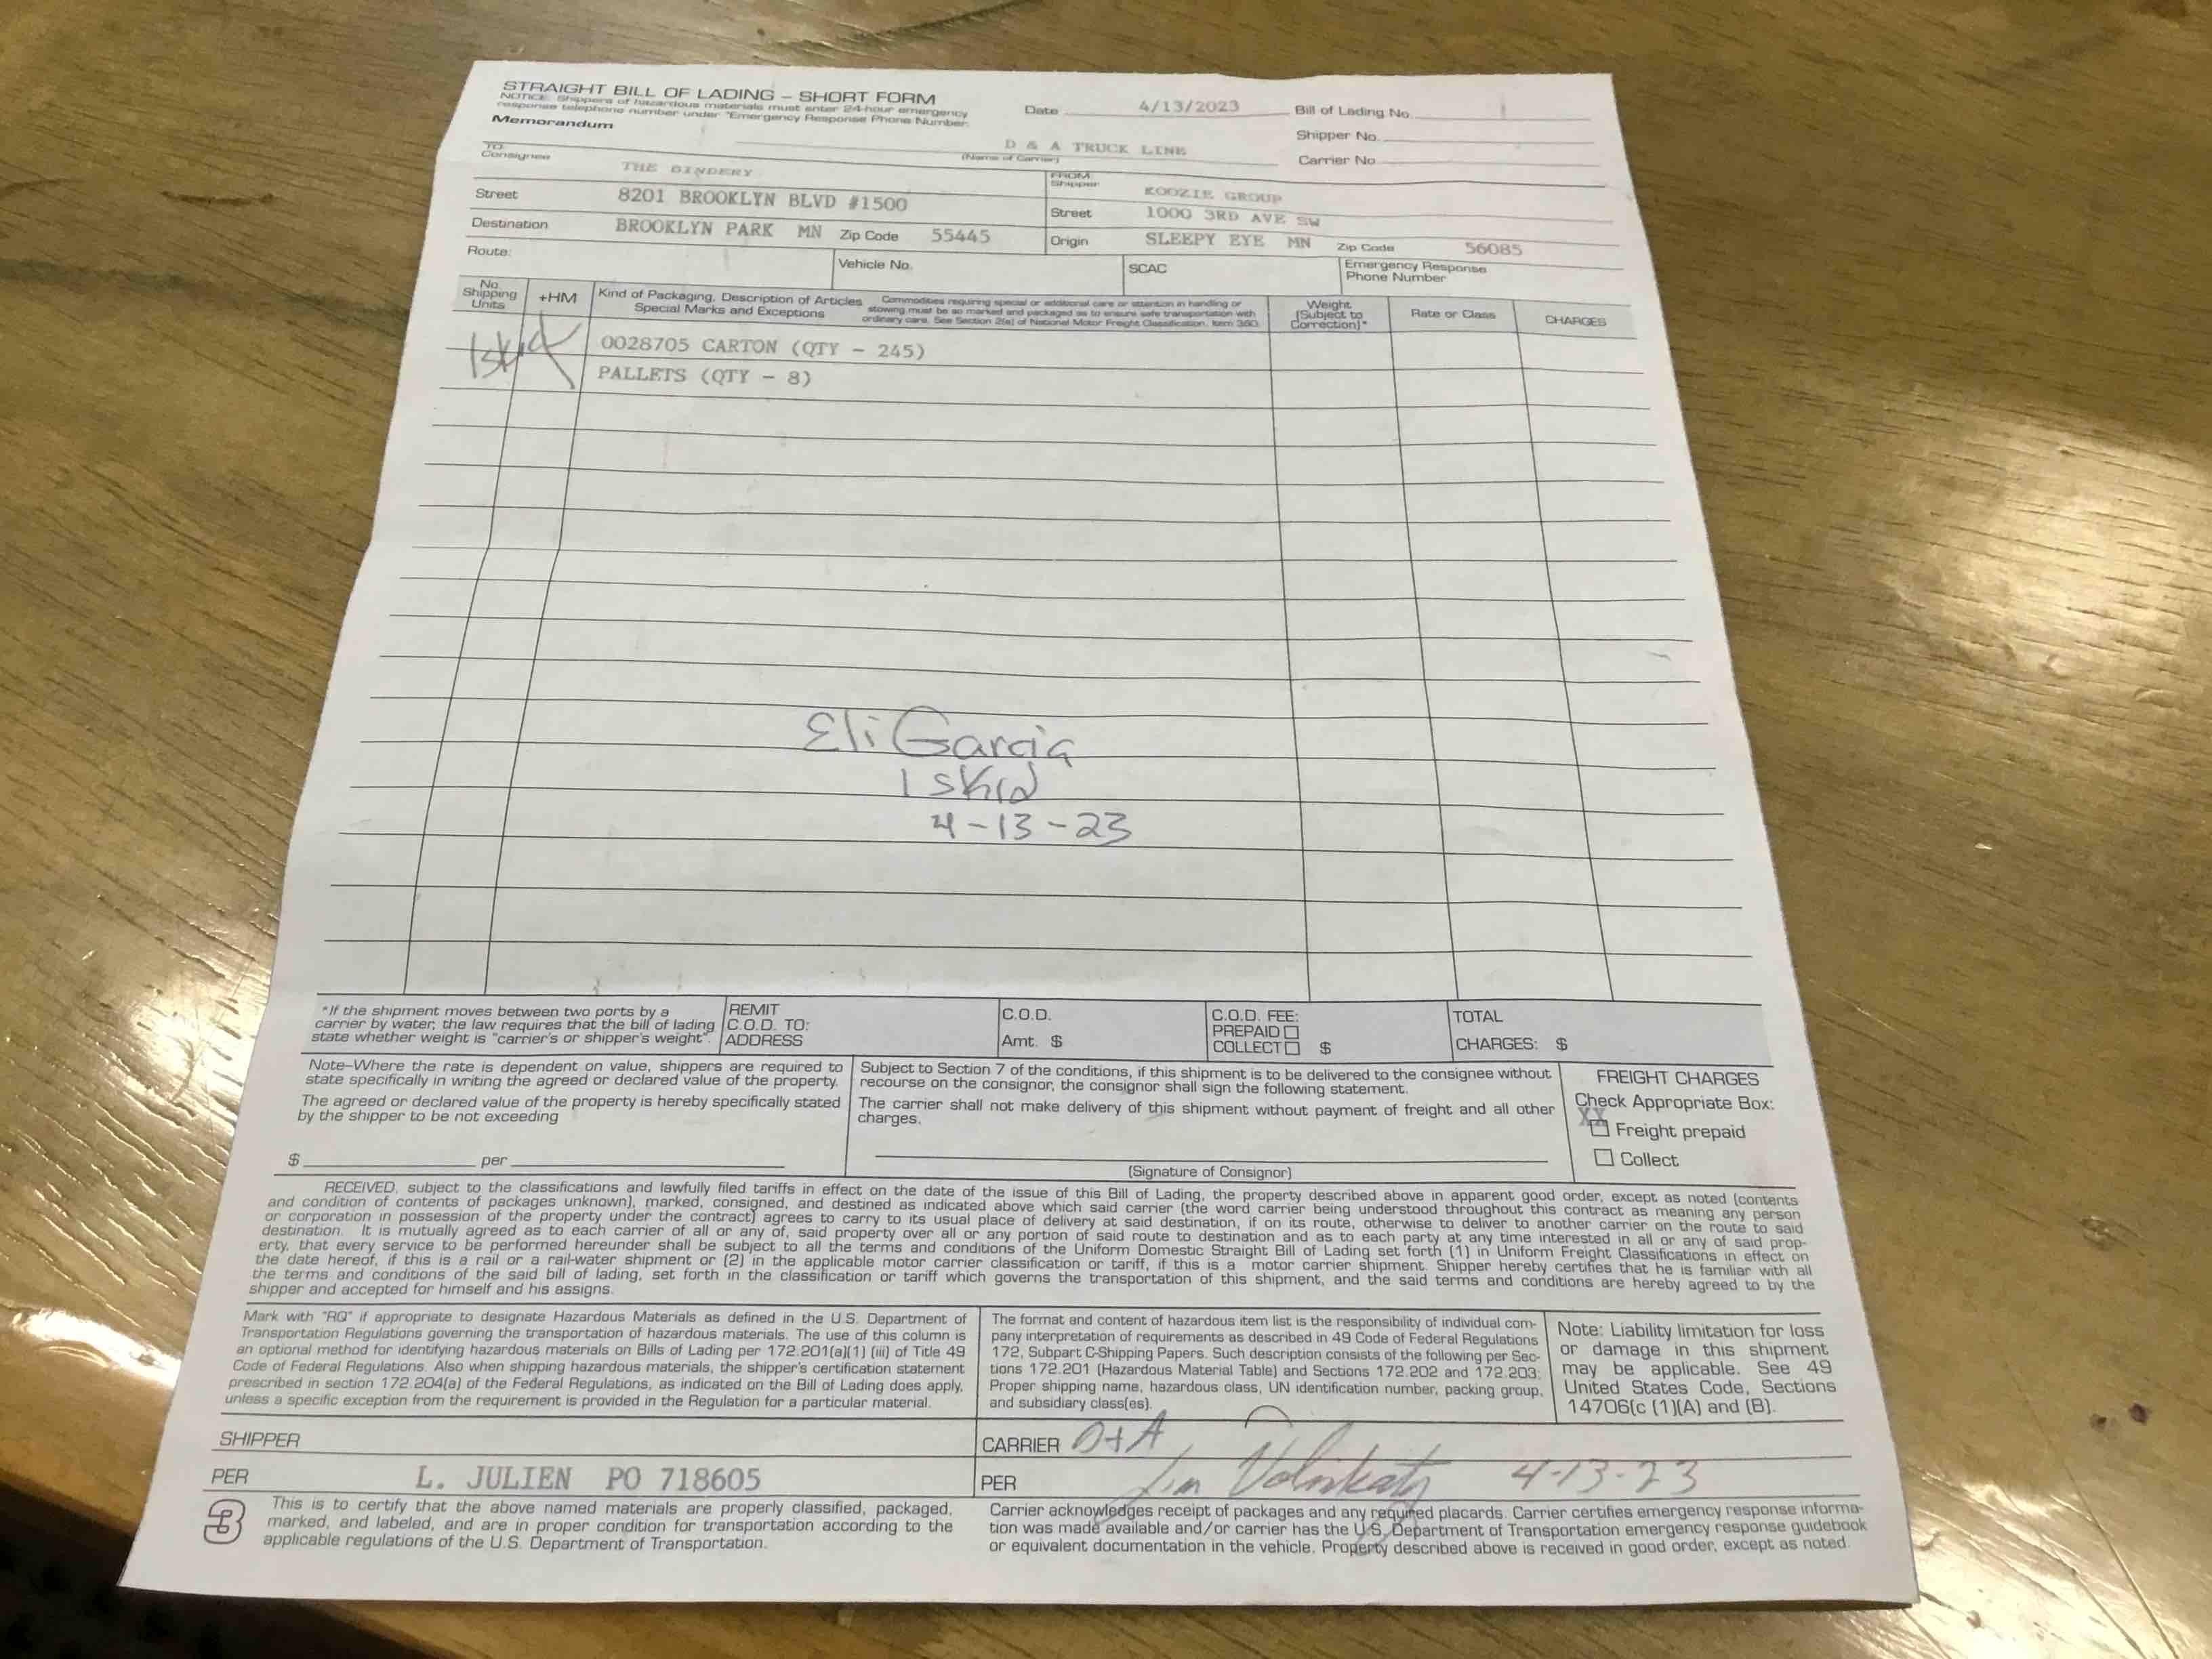 STRAIGHT BILL OF LADING – SHORT FORM
NOTICE: Shippers of hazardous materials must enter 24-hour emergency
response telephone number under "Emergency Response Phone Number.
Memorandum
Date 4/13/2023
Bill of Lading No.
Shipper No.
Carrier No.
D & A TRUCK LINE
(Name of Carrier)
TO:
Consignee THE BINDERY
Street 8201 BROOKLYN BLVD #1500
Destination BROOKLYN PARK MN Zip Code 55445
FROM:
Shipper KOOZIE GROUP
Street 1000 3RD AVE SW
Origin SLEEPY EYE MN Zip Code 56085
Route:
Vehicle No.
SCAC
Emergency Response
Phone Number
No.
Shipping
Units
+HM
Kind of Packaging, Description of Articles
Special Marks and Exceptions
Commodities requiring special or additional care or attention in handling or
stowing must be so marked and packaged as to ensure safe transportation with
ordinary care. See Section 2(e) of National Motor Freight Classification, Item 360.
Weight
(Subject to
Correction)*
Rate or Class
CHARGES
0028705 CARTON (QTY - 245)
PALLETS (QTY - 8)
Eli Garcia
1 Skid
4-13-23
*If the shipment moves between two ports by a
carrier by water, the law requires that the bill of lading
state whether weight is "carrier's or shipper's weight".
REMIT
C.O.D. TO:
ADDRESS
C.O.D.
Amt. $
C.O.D. FEE:
PREPAID
COLLECT $
TOTAL
CHARGES: $
Note–Where the rate is dependent on value, shippers are required to
state specifically in writing the agreed or declared value of the property.
The agreed or declared value of the property is hereby specifically stated
by the shipper to be not exceeding
$ per
Subject to Section 7 of the conditions, if this shipment is to be delivered to the consignee without
recourse on the consignor, the consignor shall sign the following statement.
The carrier shall not make delivery of this shipment without payment of freight and all other
charges.
(Signature of Consignor)
FREIGHT CHARGES
Check Appropriate Box:
XX
Freight prepaid
Collect
RECEIVED, subject to the classifications and lawfully filed tariffs in effect on the date of the issue of this Bill of Lading, the property described above in apparent good order, except as noted (contents
and condition of contents of packages unknown), marked, consigned, and destined as indicated above which said carrier (the word carrier being understood throughout this contract as meaning any person
or corporation in possession of the property under the contract) agrees to carry to its usual place of delivery at said destination, if on its route, otherwise to deliver to another carrier on the route to said
destination. It is mutually agreed as to each carrier of all or any of, said property over all or any portion of said route to destination and as to each party at any time interested in all or any of said prop-
erty, that every service to be performed hereunder shall be subject to all the terms and conditions of the Uniform Domestic Straight Bill of Lading set forth (1) in Uniform Freight Classifications in effect on
the date hereof, if this is a rail or a rail-water shipment or (2) in the applicable motor carrier classification or tariff, if this is a motor carrier shipment. Shipper hereby certifies that he is familiar with all
the terms and conditions of the said bill of lading, set forth in the classification or tariff which governs the transportation of this shipment, and the said terms and conditions are hereby agreed to by the
shipper and accepted for himself and his assigns.
Mark with "RQ" if appropriate to designate Hazardous Materials as defined in the U.S. Department of
Transportation Regulations governing the transportation of hazardous materials. The use of this column is
an optional method for identifying hazardous materials on Bills of Lading per 172.201(a)(1) (iii) of Title 49
Code of Federal Regulations. Also when shipping hazardous materials, the shipper's certification statement
prescribed in section 172.204(a) of the Federal Regulations, as indicated on the Bill of Lading does apply,
unless a specific exception from the requirement is provided in the Regulation for a particular material.
The format and content of hazardous item list is the responsibility of individual com-
pany interpretation of requirements as described in 49 Code of Federal Regulations
172, Subpart C-Shipping Papers. Such description consists of the following per Sec-
tions 172.201 (Hazardous Material Table) and Sections 172.202 and 172.203:
Proper shipping name, hazardous class, UN identification number, packing group,
and subsidiary class(es).
Note: Liability limitation for loss
or damage in this shipment
may be applicable. See 49
United States Code, Sections
14706(c (1)(A) and (B).
SHIPPER
PER L. JULIEN PO 718605
CARRIER D+A
PER 4-13-23
3
This is to certify that the above named materials are properly classified, packaged,
marked, and labeled, and are in proper condition for transportation according to the
applicable regulations of the U.S. Department of Transportation.
Carrier acknowledges receipt of packages and any required placards. Carrier certifies emergency response informa-
tion was made available and/or carrier has the U.S. Department of Transportation emergency response guidebook
or equivalent documentation in the vehicle. Property described above is received in good order, except as noted.